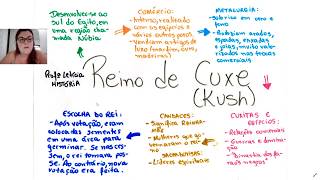 Desenvolveu-se ao
sul do Egito, em
uma região cha-
mada Núbia
COMÉRCIO:
- Intenso, realizado
com os egípcios e
vários outros povos.
- Vendiam artigos de
luxo (marfim, ouro,
madeiras)
METALURGIA:
- Sobrio em ouro e
ferro
- Produziam arados,
espadas, enxadas
e joias, muito valori-
zados nas trocas
comerciais
Profe Letícia
HISTÓRIA
Reino de Cuxe
(Kush)
ESCOLHA DO REI:
- Após votação, eram
colocadas sementes
em uma área para
germinar. Se nasces-
sem, o rei tomava pos-
se. Ao contrário, nova
votação era feita.
CANDACES:
- Significa Rainha-
mãe
- Mulheres que go-
vernaram o reino
SACERDOTISAS:
- Líderes espirituais
CUXITAS E
EGÍPCIOS:
- Relações comerciais
- Guerras e domina-
ção
- Dinastia dos fara-
ós negros